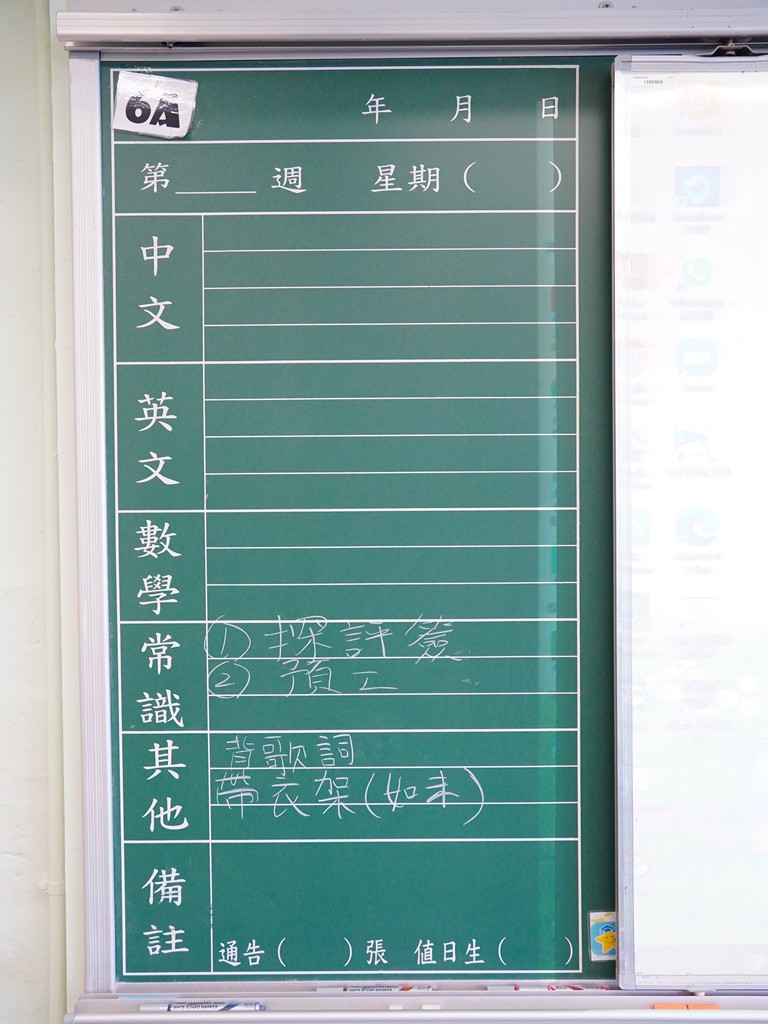 6A
年 月 日
第____週 星期( )
中文
英文
數學
常識
① 探評簽
② 預工
其他
背歌詞
帶衣架(如未)
備註
通告( )張 值日生( )